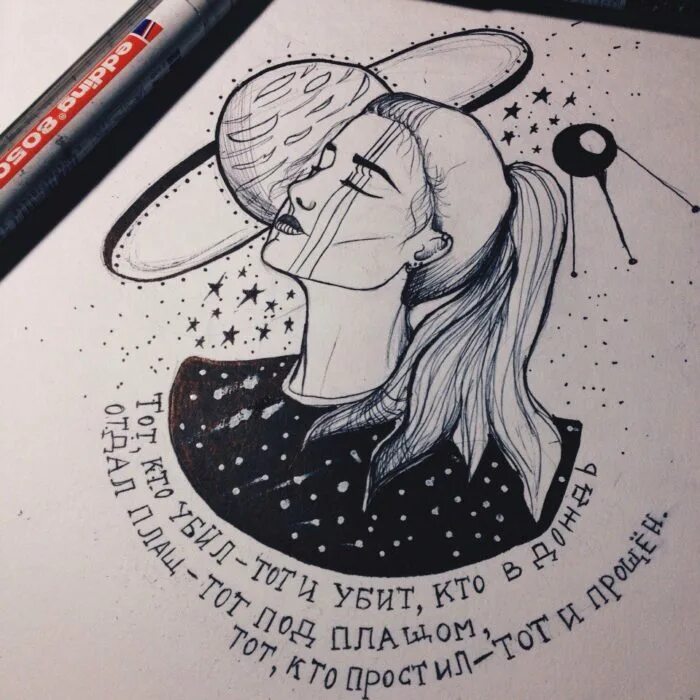 edding® 8050
Тот, кто УБИЛ – ТОТ И УБИТ, КТО В ДОЖДЬ
ОТДАЛ ПЛАЩ – ТОТ ПОД ПЛАЩОМ,
ТОТ, КТО ПРОСТИЛ – ТОТ И ПРОЩЁН.